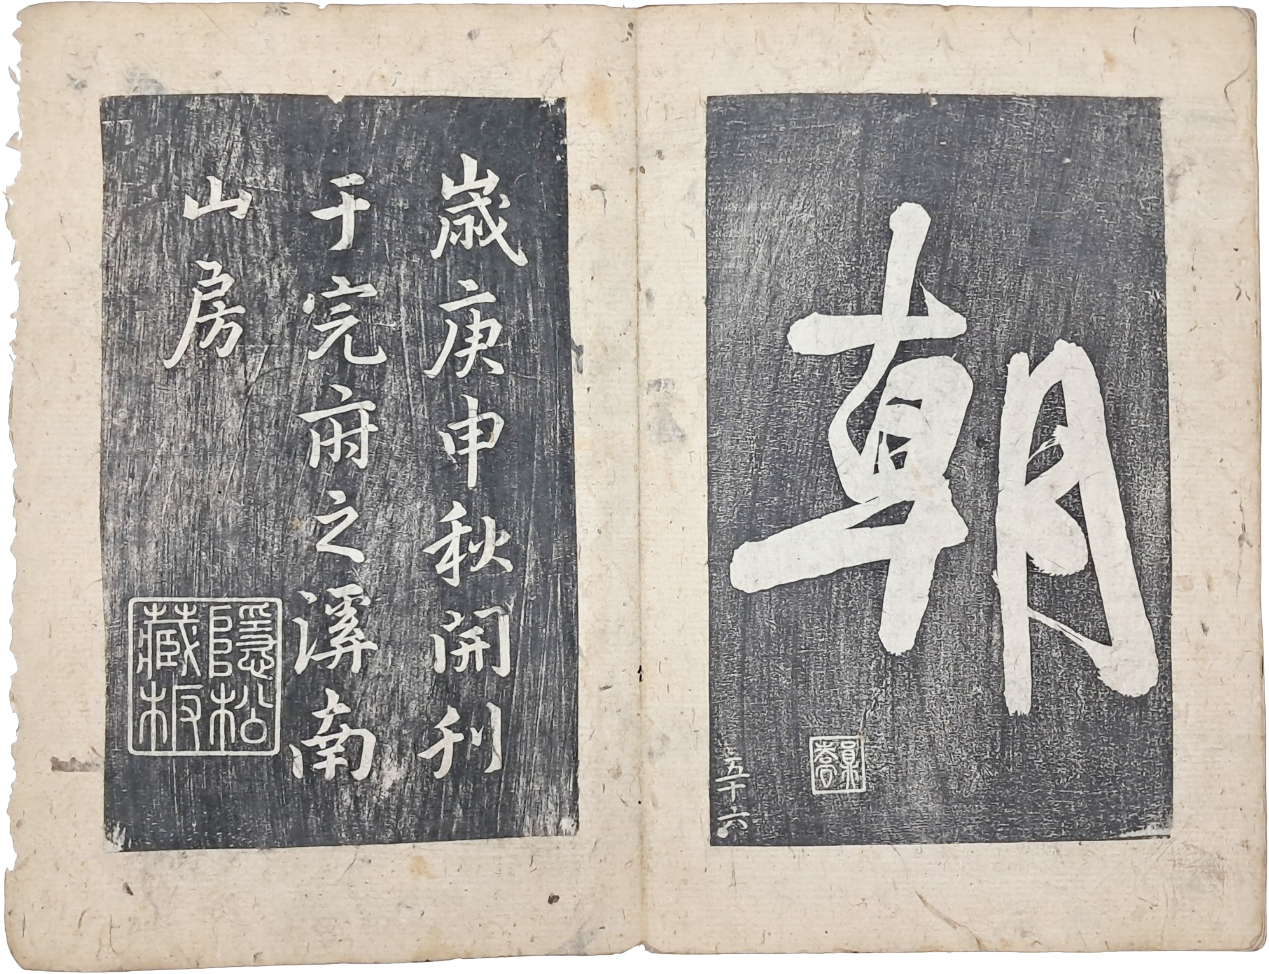 朝
五十六
歲庚申秋開刊
于完府之溪南
山房
隱松
藏板